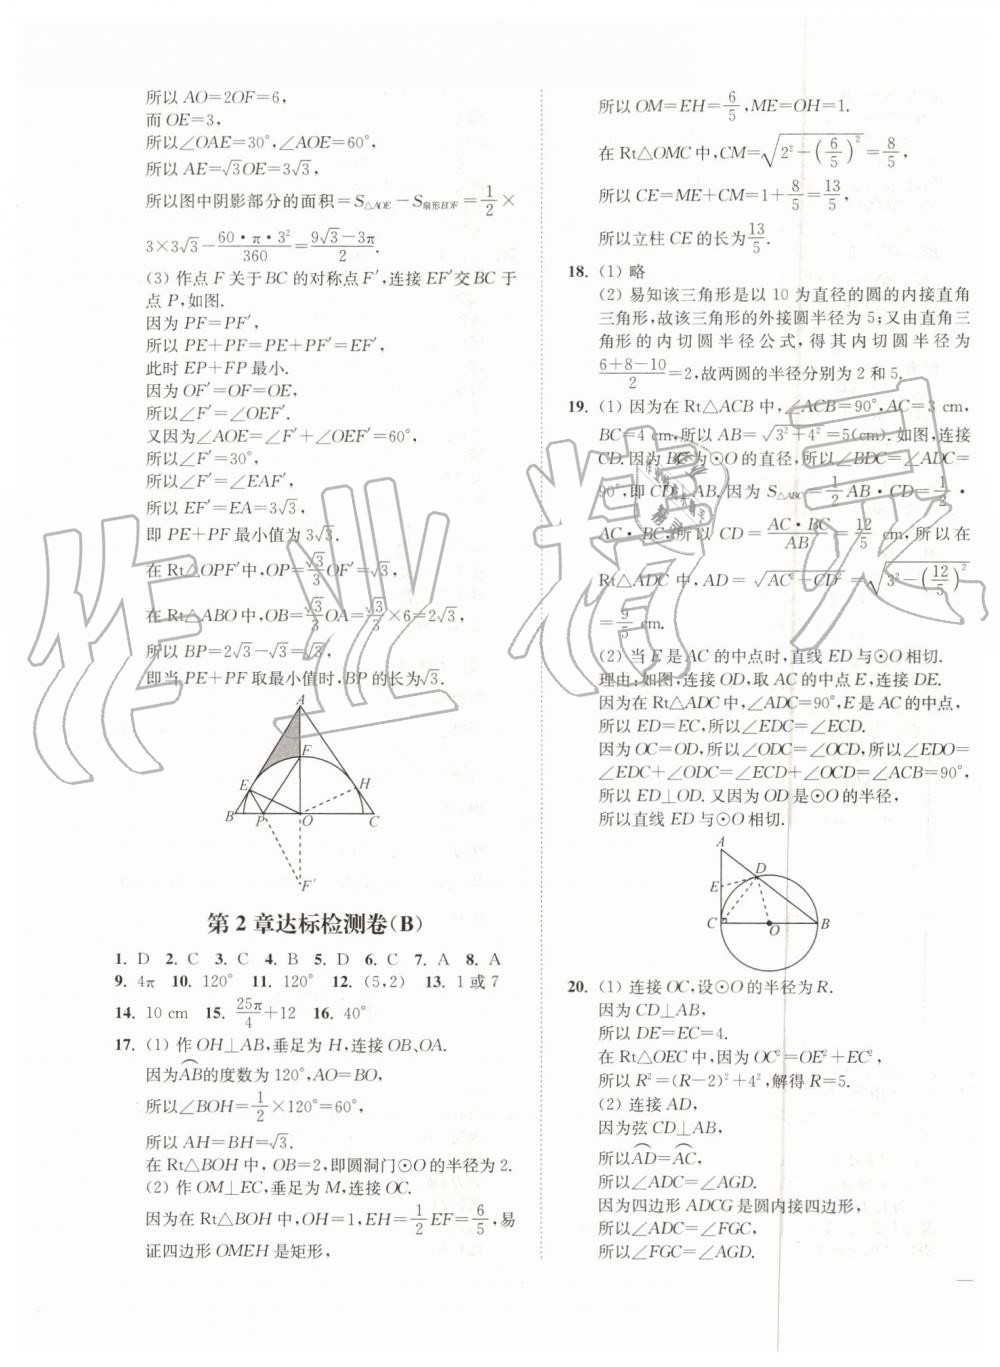 所以 AO=2OF=6,
而 OE=3,
所以∠OAE=30°,∠AOE=60°,
所以 AE=√3OE=3√3,
所以图中阴影部分的面积=S△AOE−S扇形EOF=1/2×
3×3√3−60·π·3²/360=(9√3−3π)/2.
(3) 作点 F 关于 BC 的对称点 F′,连接 EF′交 BC 于
点 P,如图.
因为 PF=PF′,
所以 PE+PF=PE+PF′=EF′,
此时 EP+FP 最小.
因为 OF′=OF=OE,
所以∠F′=∠OEF′.
又因为∠AOE=∠F′+∠OEF′=60°,
所以∠F′=30°,
所以∠F′=∠EAF′,
所以 EF′=EA=3√3,
即 PE+PF 最小值为 3√3.
在 Rt△OPF′中,OP=√3/3OF′=√3,
在 Rt△ABO 中,OB=√3/3OA=√3/3×6=2√3,
所以 BP=2√3−√3=√3,
即当 PE+PF 取最小值时,BP 的长为√3.
A
F
E
H
B
P
O
C
F′
第 2 章达标检测卷(B)
1. D 2. C 3. C 4. B 5. D 6. C 7. A 8. A
9. 4π 10. 120° 11. 120° 12. (5,2) 13. 1 或 7
14. 10 cm 15. 25π/4+12 16. 40°
17. (1) 作 OH⊥AB,垂足为 H,连接 OB、OA.
因为⌒AB的度数为 120°,AO=BO,
所以∠BOH=1/2×120°=60°,
所以 AH=BH=√3.
在 Rt△BOH 中, OB=2,即圆洞门⊙O 的半径为 2.
(2) 作 OM⊥EC,垂足为 M,连接 OC.
因为在 Rt△BOH 中,OH=1,EH=1/2EF=6/5,易
证四边形 OMEH 是矩形,
所以 OM=EH=6/5,ME=OH=1.
在 Rt△OMC 中,CM=√(2²−(6/5)²)=8/5,
所以 CE=ME+CM=1+8/5=13/5,
所以立柱 CE 的长为13/5.
18. (1) 略
(2) 易知该三角形是以 10 为直径的圆的内接直角
三角形,故该三角形的外接圆半径为 5;又由直角三
角形的内切圆半径公式,得其内切圆半径为
(6+8−10)/2=2,故两圆的半径分别为 2 和 5.
19. (1) 因为在 Rt△ACB 中,∠ACB=90°,AC=3 cm,
BC=4 cm,所以 AB=√(3²+4²)=5(cm). 如图,连接
CD. 因为 BC 为⊙O 的直径,所以∠BDC=∠ADC=
90°,即 CD⊥AB. 因为 S△ABC=1/2AB·CD=1/2·
AC·BC,所以 CD=AC·BC/AB=12/5 cm,所以在
Rt△ADC 中,AD=√(AC²−CD²)=√(3²−(12/5)²)
=9/5 cm.
(2) 当 E 是 AC 的中点时,直线 ED 与⊙O 相切.
理由:如图,连接 OD,取 AC 的中点 E,连接 DE.
因为在 Rt△ADC 中,∠ADC=90°,E 是 AC 的中点,
所以 ED=EC,所以∠EDC=∠ECD.
因为 OC=OD,所以∠ODC=∠OCD,所以∠EDO=
∠EDC+∠ODC=∠ECD+∠OCD=∠ACB=90°,
所以 ED⊥OD. 又因为 OD 是⊙O 的半径,
所以直线 ED 与⊙O 相切.
A
D
E
C
O
B
20. (1) 连接 OC,设⊙O 的半径为 R.
因为 CD⊥AB,
所以 DE=EC=4.
在 Rt△OEC 中,因为 OC²=OE²+EC²,
所以 R²=(R−2)²+4²,解得 R=5.
(2) 连接 AD,
因为弦 CD⊥AB,
所以⌒AD=⌒AC,
所以∠ADC=∠AGD.
因为四边形 ADCG 是圆内接四边形,
所以∠ADC=∠FGC,
所以∠FGC=∠AGD.
作业精灵